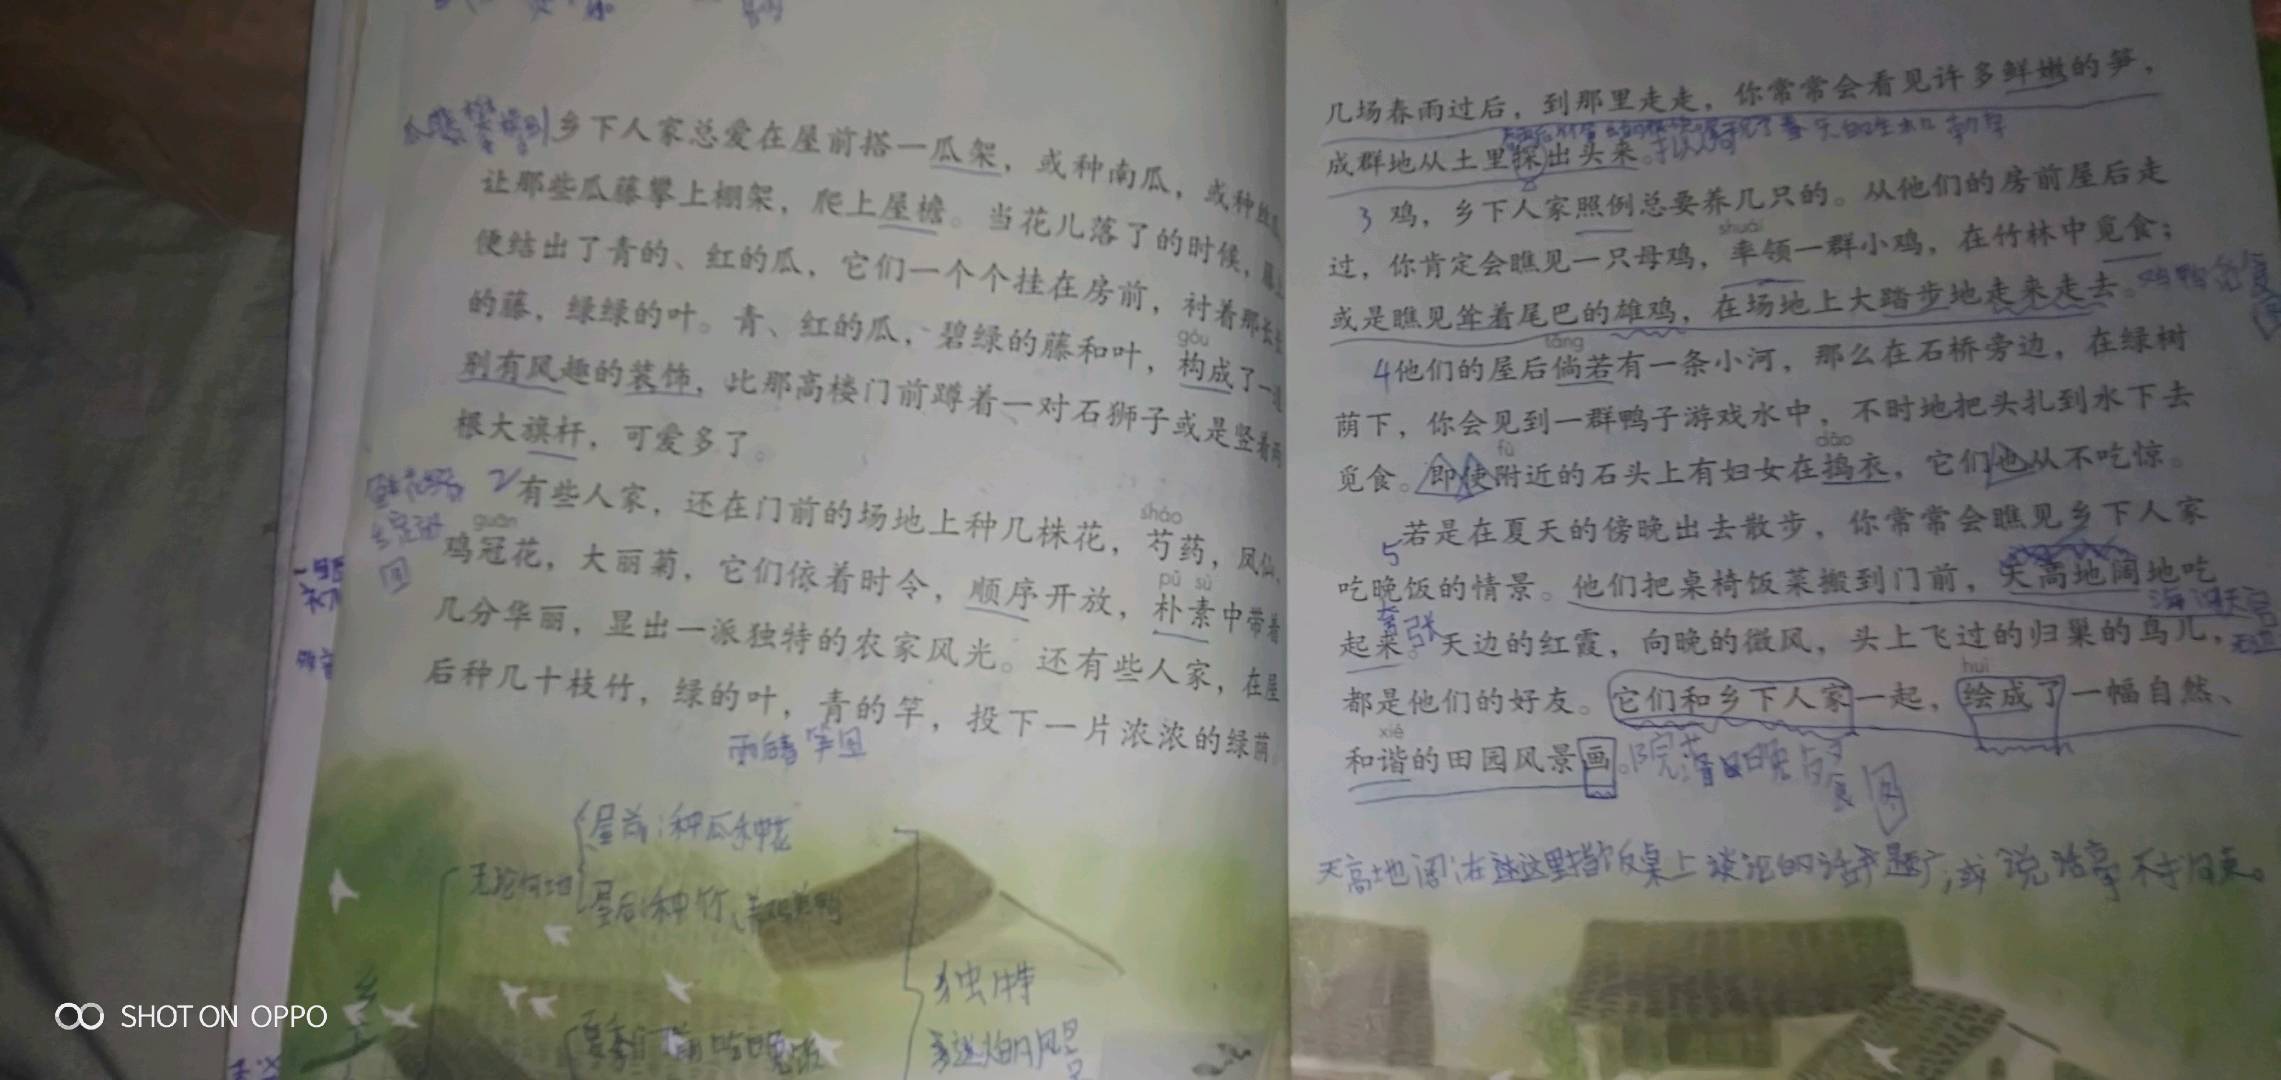 乡下人家总爱在屋前搭一瓜架，或种南瓜，或种
让那些瓜藤攀上棚架，爬上屋檐。当花儿落了的时候，
便结出了青的、红的瓜，它们一个个挂在房前，衬着那长
的藤，绿绿的叶。青、红的瓜，碧绿的藤和叶，构成了一道
gòu
别有风趣的装饰，比那高楼门前蹲着一对石狮子或是竖着两
根大旗杆，可爱多了。
2
有些人家，还在门前的场地上种几株花，芍药，凤仙，
sháo
guān
鸡冠花，大丽菊，它们依着时令，顺序开放，朴素中带着
pǔ sù
几分华丽，显出一派独特的农家风光。还有些人家，在屋
后种几十枝竹，绿的叶，青的竿，投下一片浓浓的绿荫。
屋前：种瓜种花
无论何地
屋后：种竹、养鸡养鸭
独特
几场春雨过后，到那里走走，你常常会看见许多鲜嫩的笋，
成群地从土里探出头来。
3 鸡，乡下人家照例总要养几只的。从他们的房前屋后走
shuài
过，你肯定会瞧见一只母鸡，率领一群小鸡，在竹林中觅食；
或是瞧见耸着尾巴的雄鸡，在场地上大踏步地走来走去。
tǎng
4他们的屋后倘若有一条小河，那么在石桥旁边，在绿树
荫下，你会见到一群鸭子游戏水中，不时地把头扎到水下去
fù
dǎo
觅食。即使附近的石头上有妇女在捣衣，它们也从不吃惊。
5
若是在夏天的傍晚出去散步，你常常会瞧见乡下人家
吃晚饭的情景。他们把桌椅饭菜搬到门前，天高地阔地吃
起来。天边的红霞，向晚的微风，头上飞过的归巢的鸟儿，
都是他们的好友。它们和乡下人家一起，绘成了一幅自然、
huì
xié
和谐的田园风景画。
SHOT ON OPPO